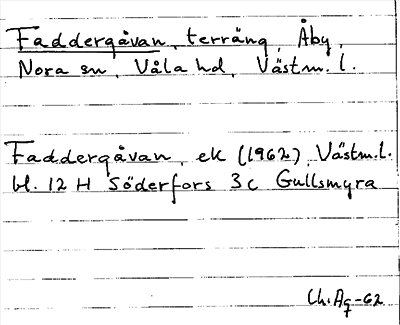 Faddergåvan, terräng, Åby,
Nora sn, Våla hd, Västm. l.
Faddergåvan, ek (1962), Västm.l.
bl. 12 H Söderfors 3 c Gullsmyra
Ch.Ag-62